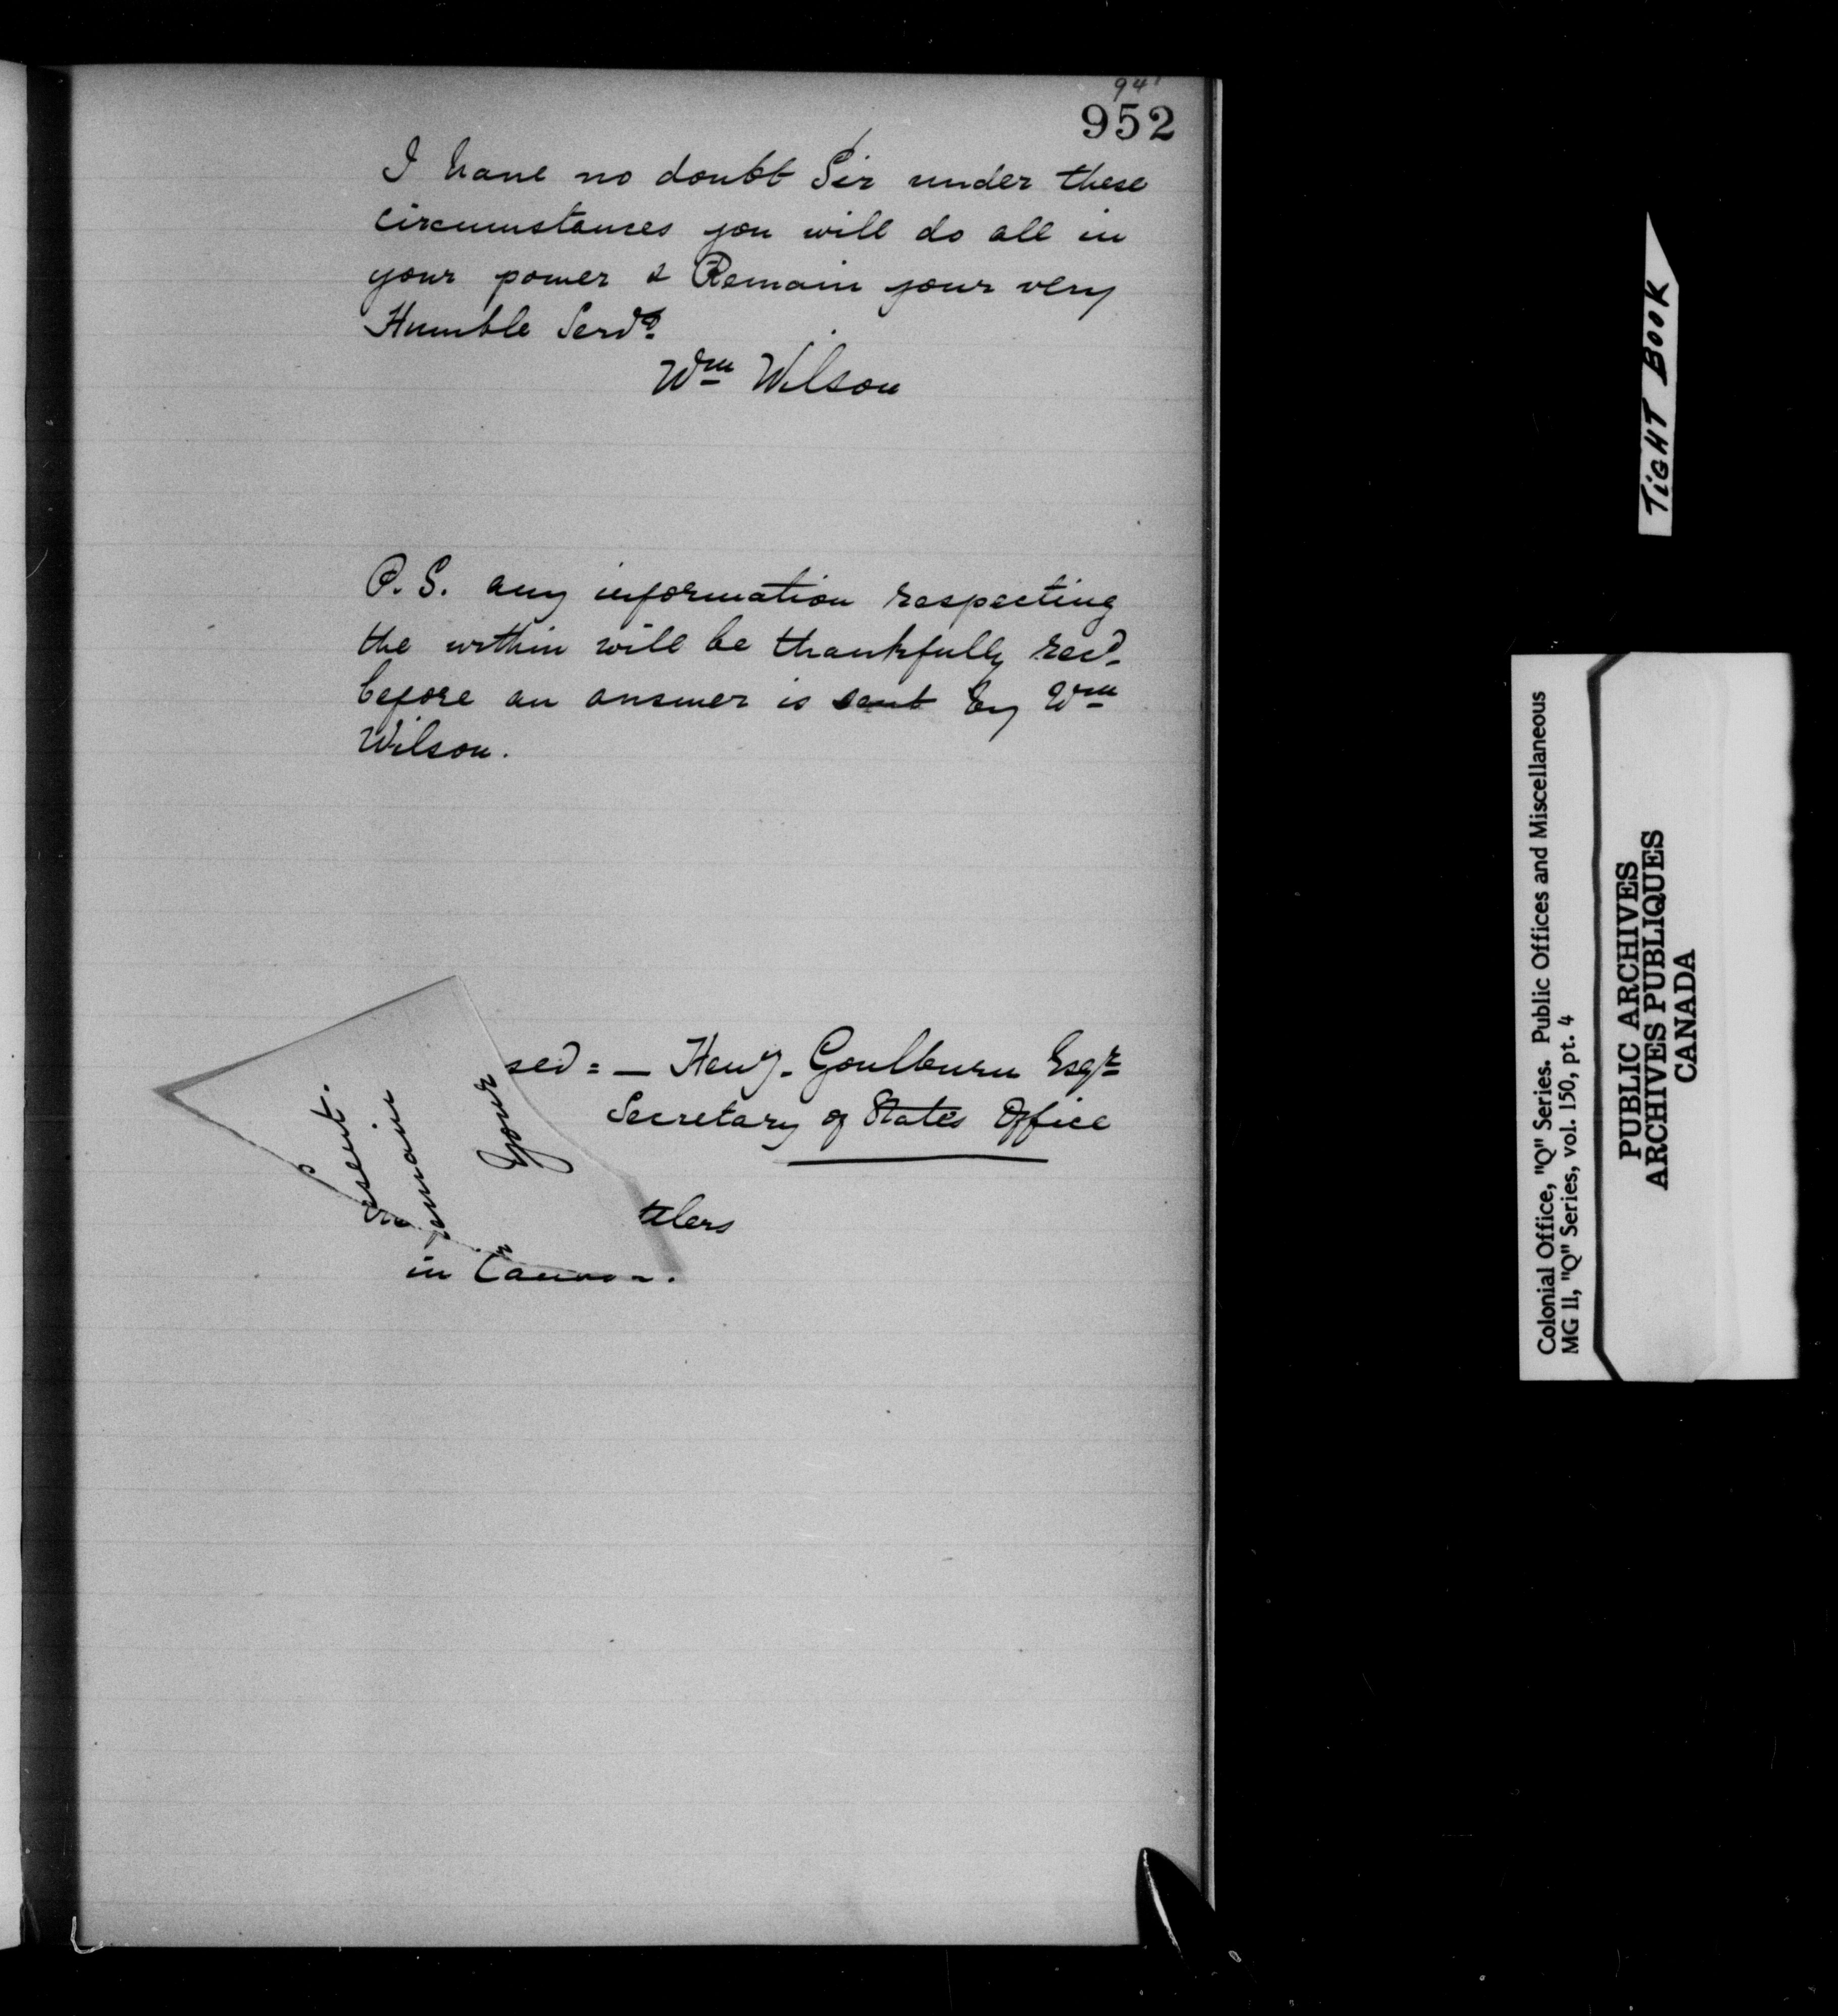 94
952
I have no doubt Sir under these
circumstances you will do all in
your power & Remain your very
Humble Servt.
Wm Wilson
P. S. any information respecting
the within will be thankfully recd.
before an answer is sent by Wm
Wilson.
sed = — Heny. Goulburn Esqr
Secretary of States Office
tlers
in
sent.
emain
Your
TiGHT BOOK
Colonial Office, "Q" Series. Public Offices and Miscellaneous
MG 11, "Q" Series, vol. 150, pt. 4
PUBLIC ARCHIVES
ARCHIVES PUBLIQUES
CANADA